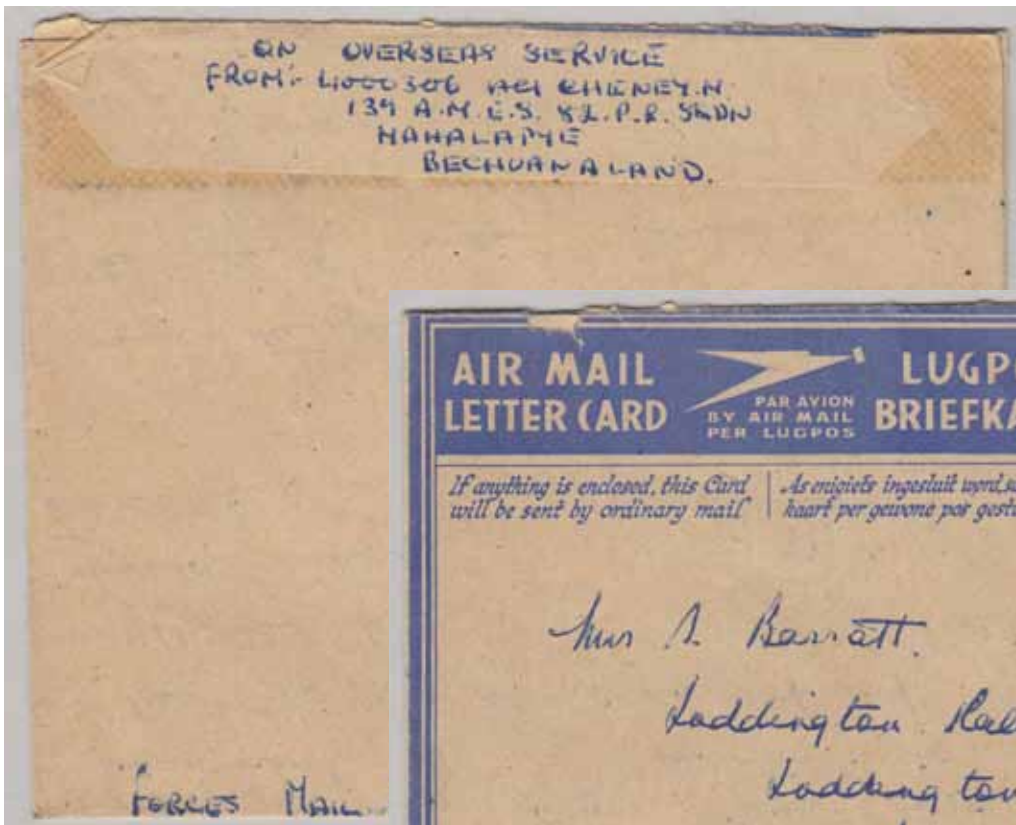 ON OVERSEAS SERVICE
FROM:- 4000306 AC1 CHENEY.N.
139 A.M.E.S. 82.P.R. SQDN
MAHALAPYE
BECHUANALAND.
AIR MAIL LETTER CARD
PAR AVION
BY AIR MAIL
PER LUGPOS
LUGPO
BRIEFKA
If anything is enclosed, this Card
will be sent by ordinary mail
As enigiets ingesluit word, sa
kaart per gewone pos gestu
Mrs S. Barratt.
Loddington Hal
Loddington
FORCES MAIL